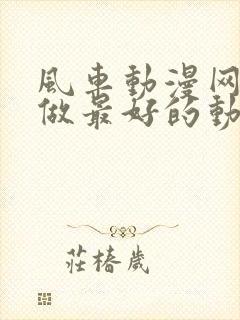 風車動漫网
做最好的動
莊椿歲